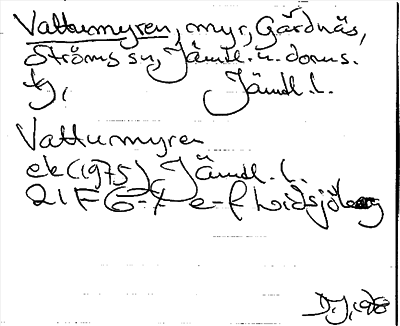 Vattumyren, myr, Gärdnäs,
Ströms sn, Jämtl. n. doms.
tg, Jämtl. l.
Vatturmyren
ek (1975), Jämtl. l.
21F 6-7 e-f
D.J. 1978